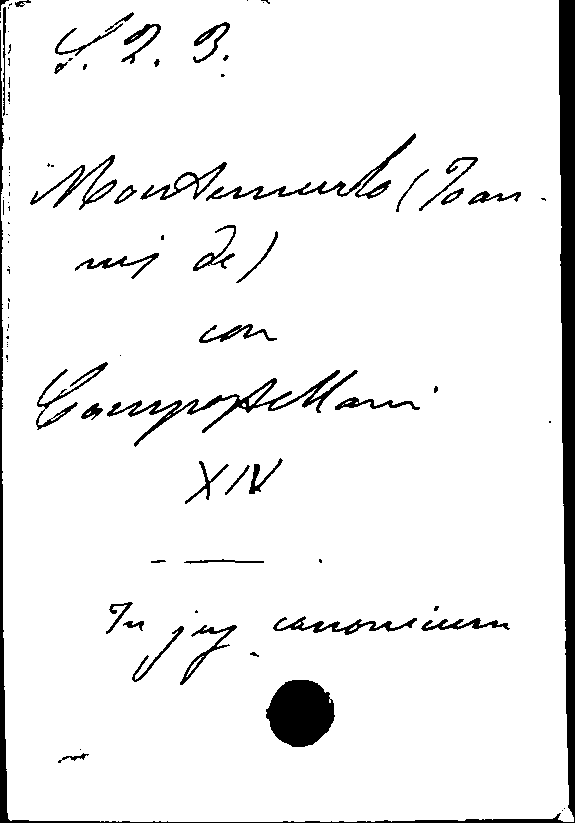 S. 2. 3.
Montemurlo (Joan-
nis de)
con
Compostellani
XIV
In jus canonicum